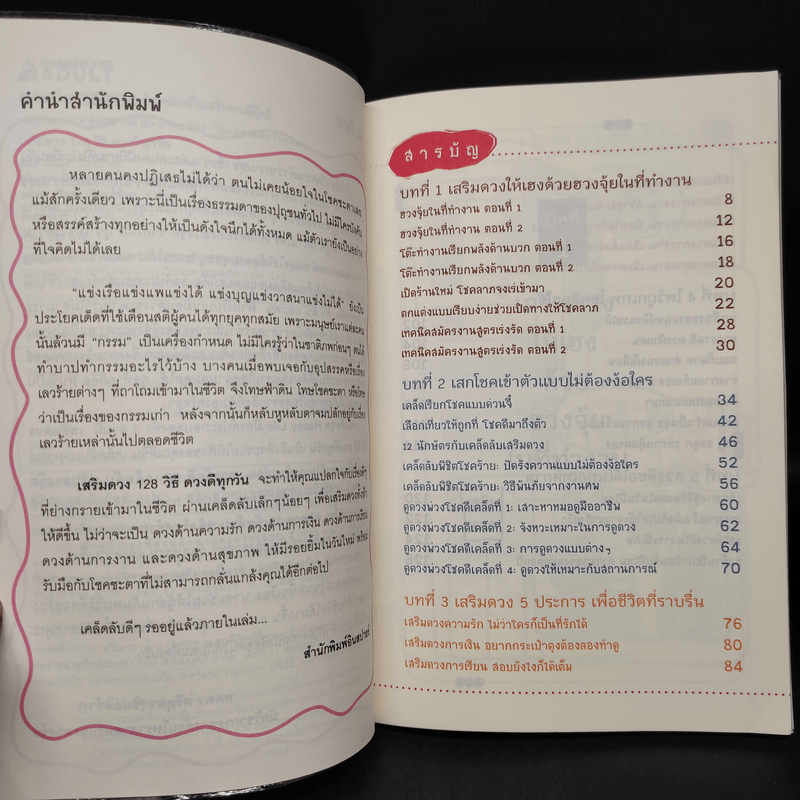 คำนำสำนักพิมพ์
หลายคนคงปฏิเสธไม่ได้ว่า ตนไม่เคยน้อยใจในโชคชะตาเลย
แม้สักครั้งเดียว เพราะนี่เป็นเรื่องธรรมดาของปุถุชนทั่วไป ไม่มีใครบังคับ
หรือสรรค์สร้างทุกอย่างให้เป็นดังใจนึกได้ทั้งหมด แม้ตัวเรายังเป็นอย่าง
ที่ใจคิดไม่ได้เลย
"แข่งเรือแข่งแพแข่งได้ แข่งบุญแข่งวาสนาแข่งไม่ได้" ยังเป็น
ประโยคเด็ดที่ใช้เตือนสติผู้คนได้ทุกยุคทุกสมัย เพราะมนุษย์เราแต่ละคน
นั้นล้วนมี "กรรม" เป็นเครื่องกำหนด ไม่มีใครรู้ว่าในชาติภพก่อนๆ ตนได้
ทำบาปทำกรรมอะไรไว้บ้าง บางคนเมื่อพบเจอกับอุปสรรคหรือเรื่อง
เลวร้ายต่างๆ ที่ถาโถมเข้ามาในชีวิต จึงโทษฟ้าดิน โทษโชคชะตา หรือโทษ
ว่าเป็นเรื่องของกรรมเก่า หลังจากนั้นก็หลับหูหลับตาจมปลักอยู่กับเรื่อง
เลวร้ายเหล่านั้นไปตลอดชีวิต
เสริมดวง 128 วิธี ดวงดีทุกวัน จะทำให้คุณแปลกใจกับเรื่องดีๆ
ที่ย่างกรายเข้ามาในชีวิต ผ่านเคล็ดลับเล็กๆน้อยๆ เพื่อเสริมดวงทั้งห้า
ให้ดีขึ้น ไม่ว่าจะเป็น ดวงด้านความรัก ดวงด้านการเงิน ดวงด้านการเรียน
ดวงด้านการงาน และดวงด้านสุขภาพ ให้มีรอยยิ้มในวันใหม่ พร้อม
รับมือกับโชคชะตาที่ไม่สามารถกลั่นแกล้งคุณได้อีกต่อไป
เคล็ดลับดีๆ รออยู่แล้วภายในเล่ม...
สำนักพิมพ์อินสปายร์
สารบัญ
บทที่ 1 เสริมดวงให้เฮงด้วยฮวงจุ้ยในที่ทำงาน
ฮวงจุ้ยในที่ทำงาน ตอนที่ 1 8
ฮวงจุ้ยในที่ทำงาน ตอนที่ 2 12
โต๊ะทำงานเรียกพลังด้านบวก ตอนที่ 1 16
โต๊ะทำงานเรียกพลังด้านบวก ตอนที่ 2 18
เปิดร้านใหม่ โชคลาภจงเร่เข้ามา 20
ตกแต่งแบบเรียบง่ายช่วยเปิดทางให้โชคลาภ 22
เทคนิคสมัครงานสูตรเร่งรัด ตอนที่ 1 28
เทคนิคสมัครงานสูตรเร่งรัด ตอนที่ 2 30
บทที่ 2 เสกโชคเข้าตัวแบบไม่ต้องง้อใคร
เคล็ดเรียกโชคแบบด่วนจี๋ 34
เลือกเที่ยวให้ถูกที่ โชคดีมาถึงตัว 42
12 นักษัตรกับเคล็ดลับเสริมดวง 46
เคล็ดลับพิชิตโชคร้าย: ปัดรังควานแบบไม่ต้องง้อใคร 52
เคล็ดลับพิชิตโชคร้าย: วิธีพ้นภัยจากงานศพ 56
ดูดวงพ่วงโชคดีเคล็ดที่ 1: เสาะหาหมอดูมืออาชีพ 60
ดูดวงพ่วงโชคดีเคล็ดที่ 2: จังหวะเหมาะในการดูดวง 62
ดูดวงพ่วงโชคดีเคล็ดที่ 3: การดูดวงแบบต่างๆ 64
ดูดวงพ่วงโชคดีเคล็ดที่ 4: ดูดวงให้เหมาะกับสถานการณ์ 70
บทที่ 3 เสริมดวง 5 ประการ เพื่อชีวิตที่ราบรื่น
เสริมดวงความรัก ไม่ว่าใครก็เป็นที่รักได้ 76
เสริมดวงการเงิน อยากกระเป๋าตุงต้องลองทำดู 80
เสริมดวงการเรียน สอบยังไงก็ได้เต็ม 84